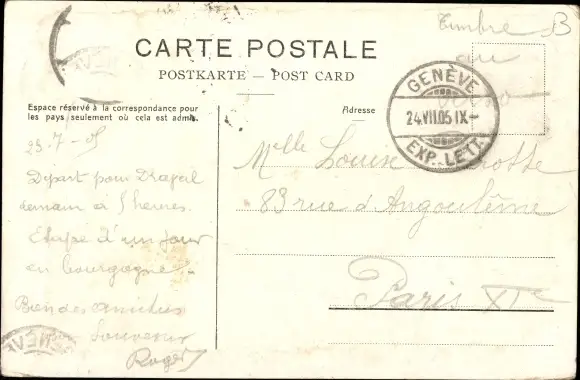 Timbre
au
verso
B
CARTE POSTALE
POSTKARTE — POST CARD
Espace réservé à la correspondance pour
les pays seulement où cela est admis.
Adresse
GENÈVE
24.VII.05 IX-
EXP. LETT.
23-7-05
Départ pour
demain à 5 heures.
Etape d'un jour
en bourgogne.
Bien des amitiés
Souvenir
Roger
Mlle Louise
83 rue d'Angoulême
Paris XIe
GENÈV